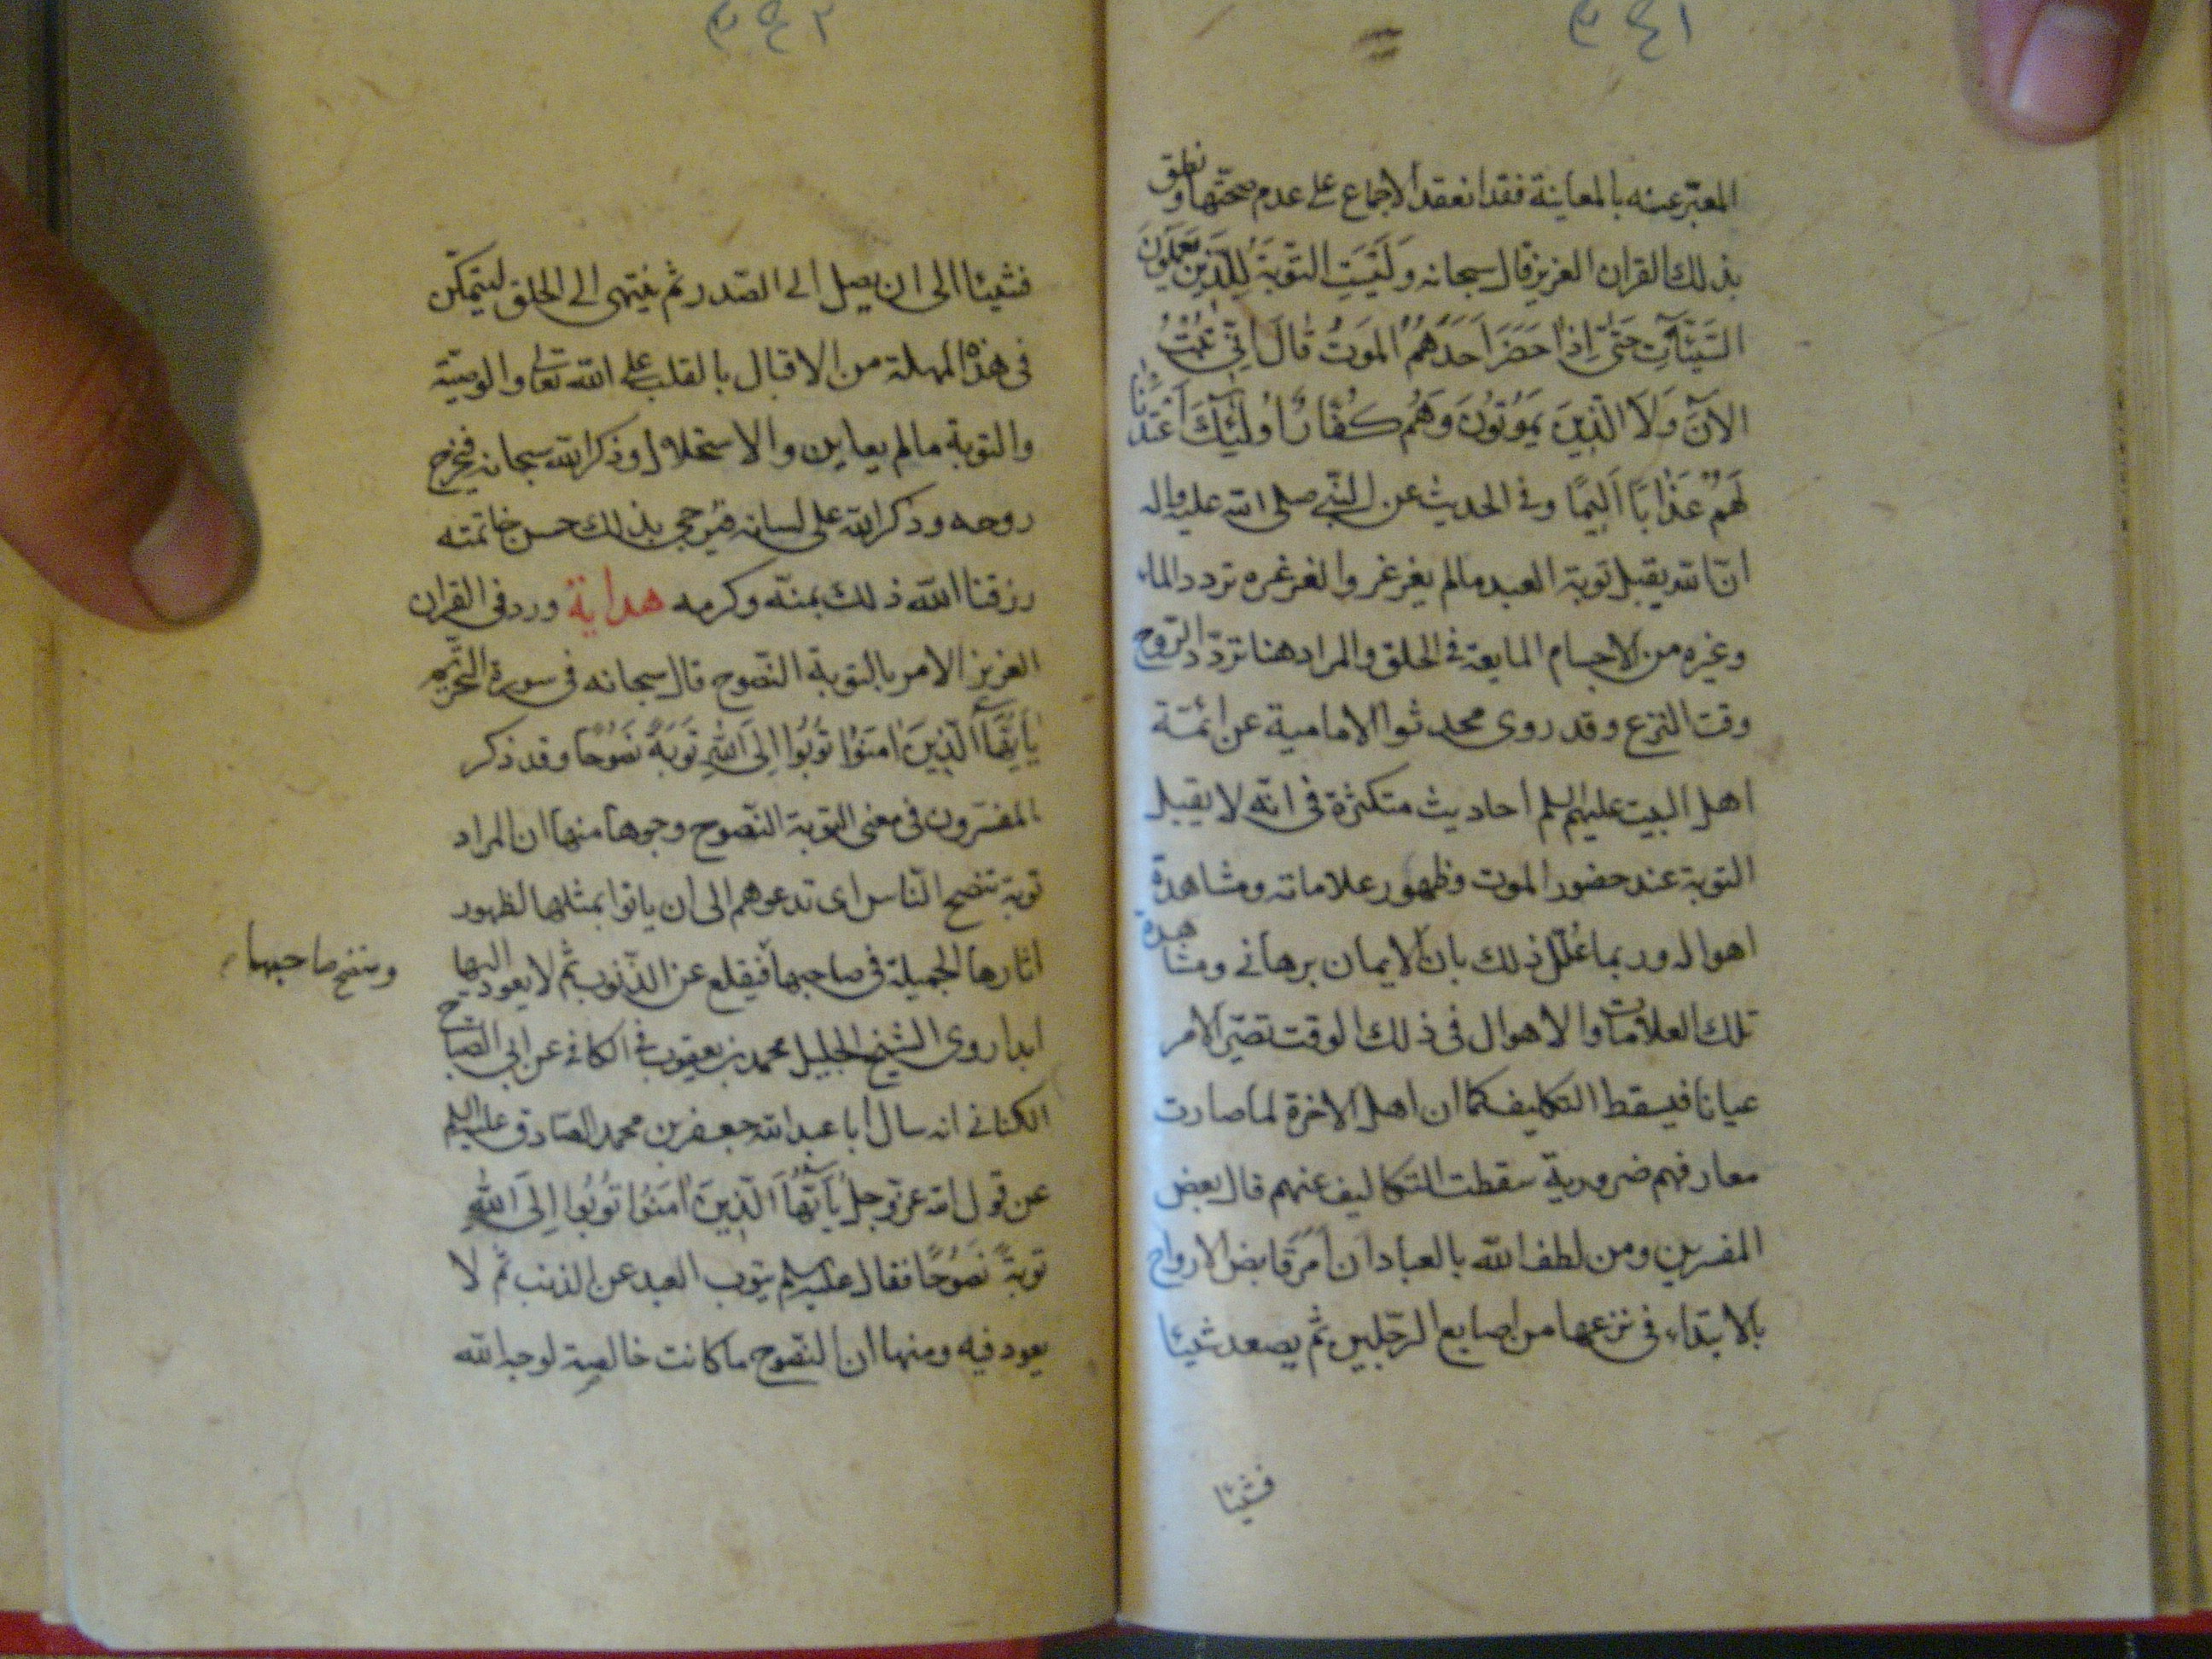 ٣٤١
المعبّر عنه بالمعاينة فقد انعقد الاجماع على عدم صحّتها ونطق
بذلك القران العزيز قال سبحانه وَلَيْسَتِ التَّوْبَةُ لِلَّذِينَ يَعْمَلُونَ
السَّيِّئَاتِ حَتَّى اِذَا حَضَرَ اَحَدَهُمُ المَوْتُ قَالَ اِنِّي تُبْتُ
الآنَ وَلَا الَّذِينَ يَمُوتُونَ وَهُمْ كُفَّارٌ اُولَئِكَ اَعْتَدْنَا
لَهُمْ عَذَابًا اَلِيمًا وفي الحديث عن النبي صلى الله عليه واله
انّ الله يقبل توبة العبد ما لم يغرغر والغرغره تردد الماء
وغيره من الاجسام المايعة في الحلق والمراد هنا تردّد الرّوح
وقت النزع وقد روى محدثوا الامامية عن ائمّة
اهل البيت عليهم السلم احاديث متكثرة في انّه لا يقبل
التوبة عند حضور الموت وظهور علاماته ومشاهدة
اهواله وربما عُلّل ذلك بان الايمان برهاني ومشاهدة
تلك العلامات والاهوال في ذلك الوقت تصيّر الامر
عيانا فيسقط التكليف كما ان اهل الاخرة لما صارت
معارفهم ضرورية سقطت التكاليف عنهم قال بعض
المفسرين ومن لطف الله بالعباد ان اَمَرَ قابض الارواح
بالابتداء في نزعها من اصابع الرّجلين ثم يصعد شيئا
فشيئا
٣٤٢
فشيئا الى ان يصل الى الصّدر ثم ينتهى الى الحلق ليتمكّن
في هذه المهلة من الاقبال بالقلب على الله تعالى والوصيّة
والتوبة ما لم يعاين والاستحلال وذكر الله سبحانه فيخرج
روحه وذكر الله على لسانه فيرجى بذلك حسن خاتمته
رزقنا الله ذلك بمنّه وكرمه هداية ورد في القران
العزيز الامر بالتوبة النّصوح قال سبحانه في سورة التحريم
يَا اَيُّهَا الَّذِينَ امَنُوا تُوبُوا اِلَى اللهِ تَوبَةً نَصُوحًا وقد ذكر
المفسّرون في معنى التوبة النّصوح وجوها منها ان المراد
توبة تنصح النّاس اى تدعوهم الى ان ياتوا بمثلها لظهور
اثارها الجميلة في صاحبها فيقلع عن الذّنوب ثم لا يعود اليها
وينصح صاحبها
ابدا روى الشيخ الجليل محمد بن يعقوب في الكافي عن ابي الصباح
الكناني انه سال ابا عبد الله جعفر بن محمد الصادق عليه السلم
عن قول الله عز وجل يَا اَيُّهَا الَّذِينَ امَنُوا تُوبُوا اِلَى اللهِ
تَوبَةً نَصُوحًا فقال عليه السلم يتوب العبد عن الذنب ثم لا
يعود فيه ومنها ان النصوح ما كانت خالصة لوجه الله